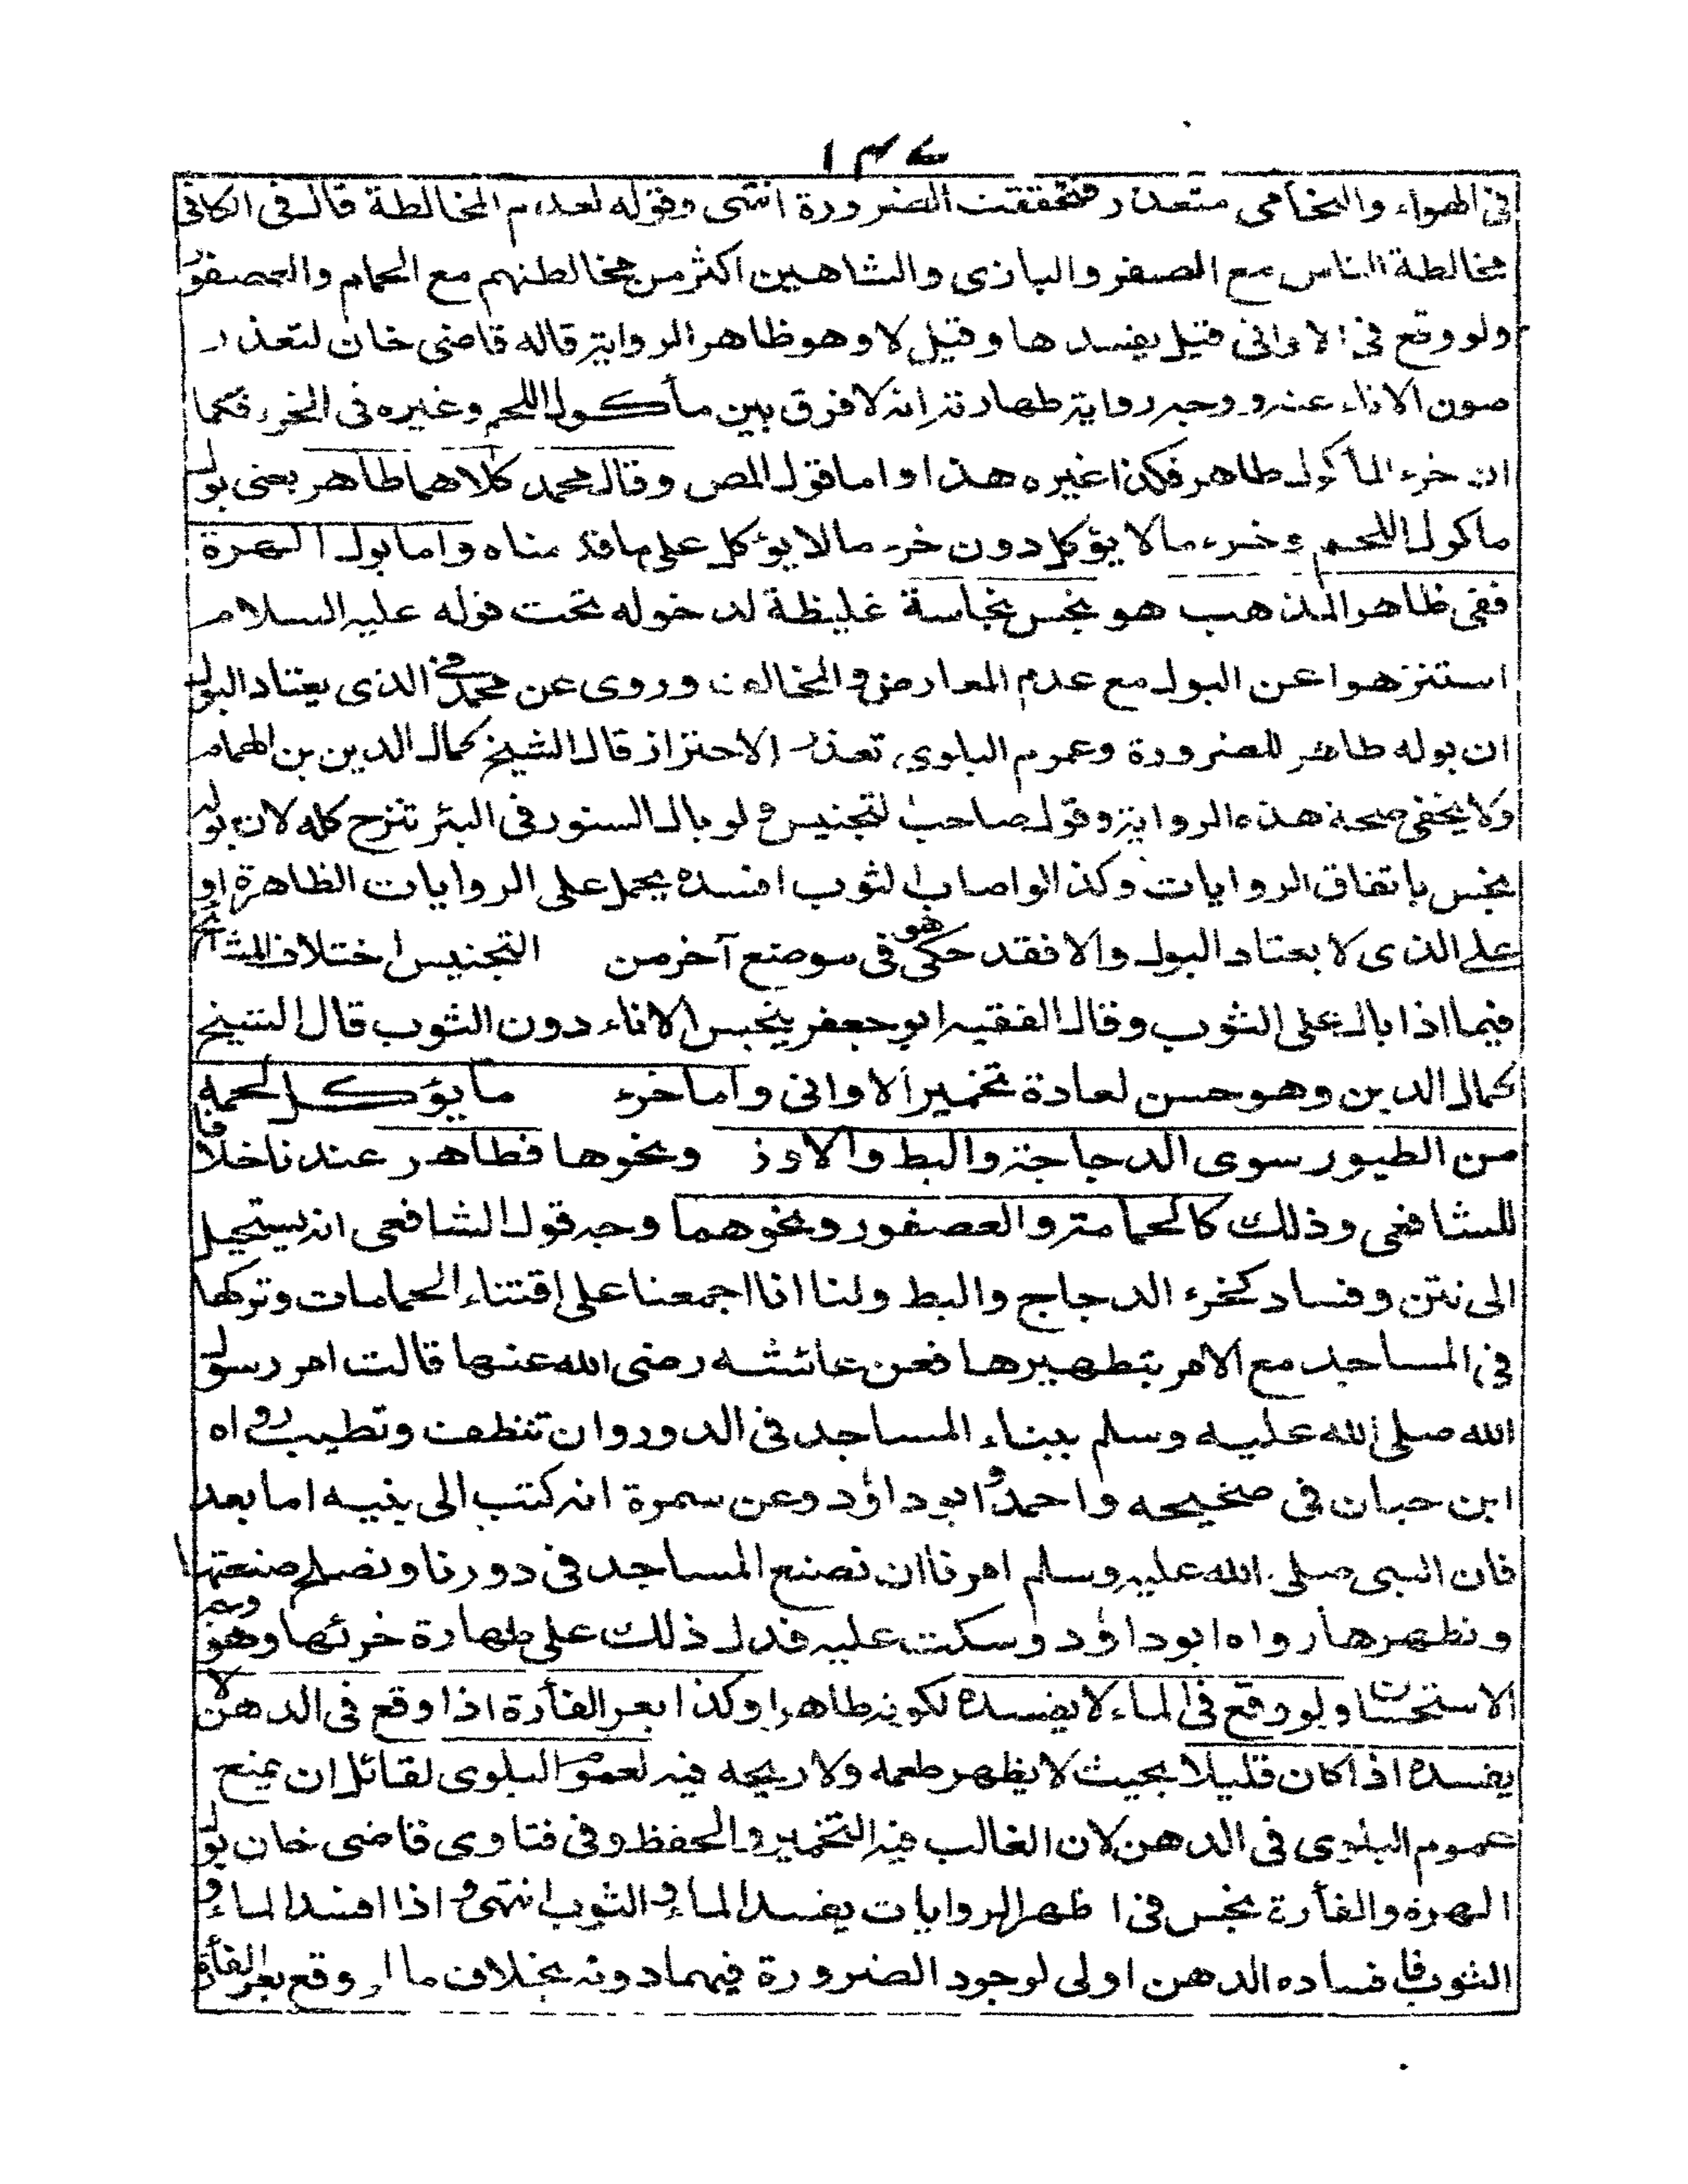 ١٤٧
في الهواء والتحامي متعذر فتحققت الضرورة انتهى وقوله لعدم المخالطة قال في الكافي
مخالطة الناس مع الصقر والبازي والشاهين اكثر من مخالطتهم مع الحمام والعصفور
ولو وقع في الاواني قيل يفسدها وقيل لا وهو ظاهر الرواية قاله قاضي خان لتعذر
صون الاناء عنه ووجه رواية طهارته انه لا فرق بين مأكول اللحم وغيره في الخرء فكما
ان خرء المأكول طاهر فكذا غيره هذا واما قول المص وقال محمد كلاهما طاهر يعني بول
ماكول اللحم وخرء مالا يؤكل دون خرء مالا يؤكل على ما قدمناه واما بول الهرة
ففي ظاهر المذهب هو نجس نجاسة غليظة لدخوله تحت قوله عليه السلام
استنزهوا عن البول مع عدم المعارض والمخالف وروى عن محمد في الذي يعتاد البول
ان بوله طاهر للضرورة وعموم البلوى تعذر الاحتراز قال الشيخ كمال الدين بن الهمام
ولا يخفى صحة هذه الرواية وقول صاحب التجنيس ولو بال السنور في البئر تنزح كله لان بوله
نجس باتفاق الروايات وكذا لو اصاب الثوب افسده يحمل على الروايات الظاهرة او
على الذي لا يعتاد البول والا فقد حكى هو في موضع آخر من التجنيس اختلاف المشائخ
فيما اذا بال على الثوب وقال الفقيه ابو جعفر ينجس الاناء دون الثوب قال الشيخ
كمال الدين وهو حسن لعادة تخمير الاواني واما خرء ما يؤكل لحمه
من الطيور سوى الدجاجة والبط والاوز ونحوها فطاهر عندنا خلافا
للشافعي وذلك كالحمامة والعصفور ونحوهما وجه قول الشافعي انه يستحيل
الى نتن وفساد كخرء الدجاج والبط ولنا انا اجمعنا على اقتناء الحمامات وتركها
في المساجد مع الامر بتطهيرها فعن عائشه رضي الله عنها قالت امر رسول
الله صلى الله عليه وسلم ببناء المساجد في الدور وان تنظف وتطيب رواه
ابن حبان في صحيحه واحمد وابو داود وعن سمرة انه كتب الى بنيه اما بعد
فان النبي صلى الله عليه وسلم امرنا ان نصنع المساجد في دورنا ونصلح صنعتها
ونطهرها رواه ابو داود وسكت عليه فدل ذلك على طهارة خرئها وهو وجه
الاستحسان ولو وقع في الماء لا يفسده لكونه طاهرا وكذا بعر الفأرة اذا وقع في الدهن لا
يفسده اذا كان قليلا بحيث لا يظهر طعمه ولا ريحه فيه لعموم البلوى لقائل ان يمنع
عموم البلوى في الدهن لان الغالب فيه التخمير والحفظ وفي فتاوى قاضي خان بول
الهرة والفأرة نجس في اظهر الروايات يفسد الماء والثوب انتهى واذا افسد الماء و
الثوب فافساده الدهن اولى لوجود الضرورة فيهما دونه بخلاف ما وقع بعر الفأرة